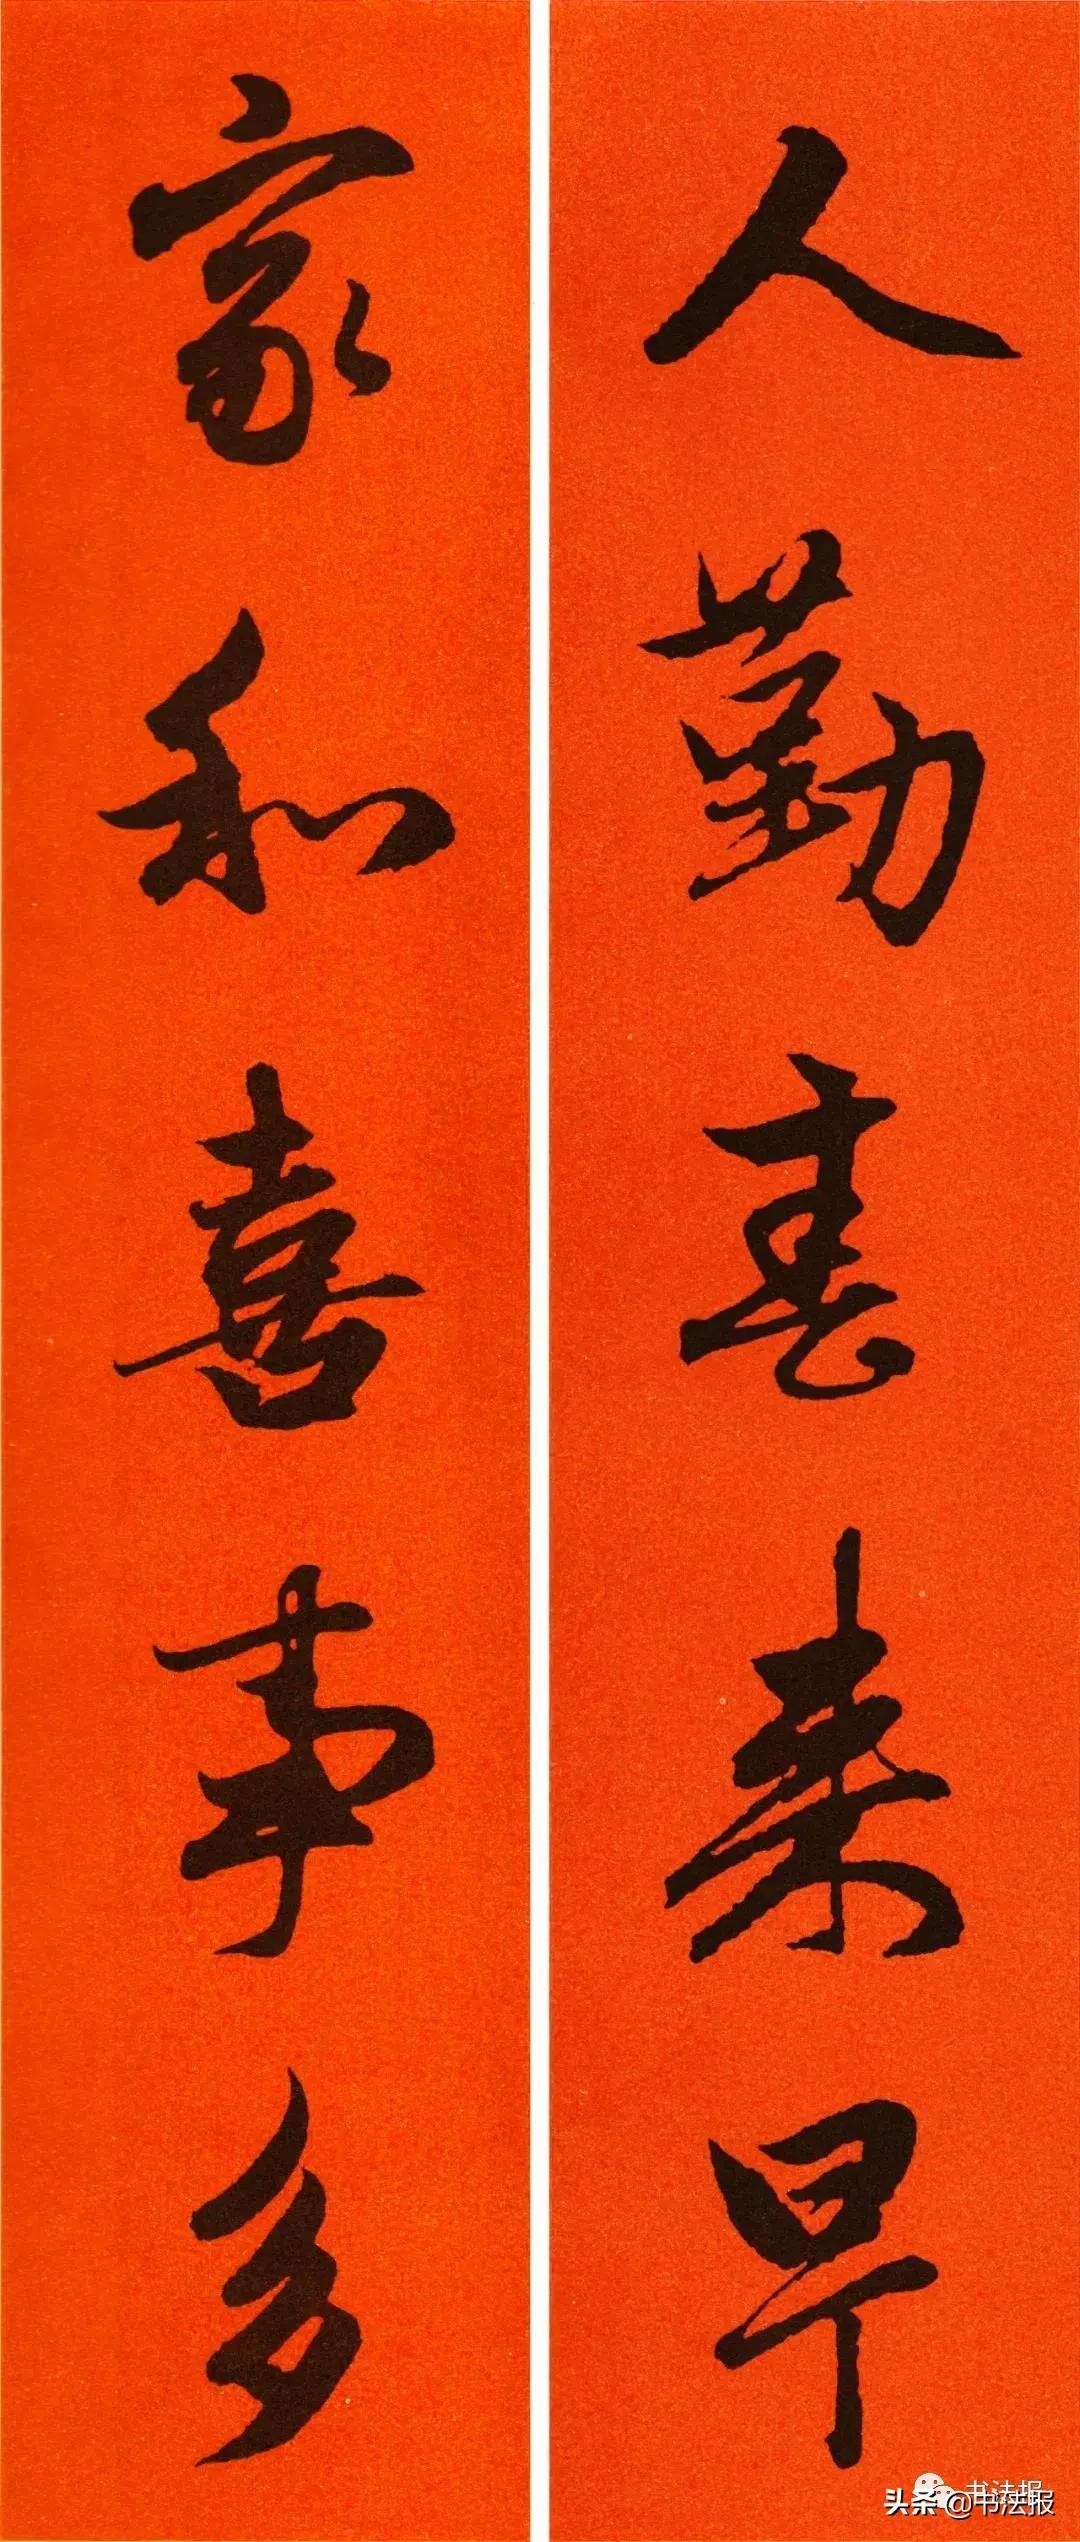 人勤春来早
家和喜事多
书法报
头条@书法报